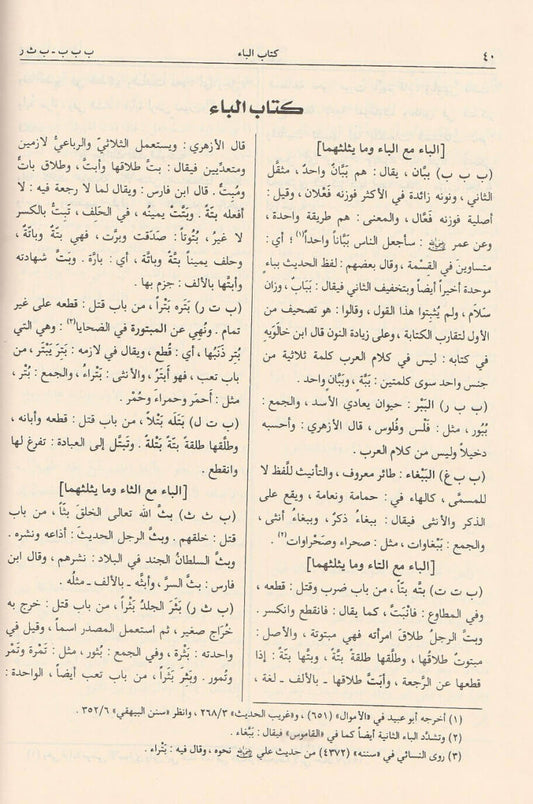 ٤٠
كتاب الباء
ب ب ب - ب ث ر
كتاب الباء
[الباء مع الباء وما يثلثهما]
(ب ب ب) ببَّان، يقال: هم بَبَّانٌ واحدٌ، مثقَّل
الثاني، ونونه زائدة في الأكثر فوزنه فَعْلان، وقيل:
أصلية فوزنه فَعَّال، والمعنى: هم طريقة واحدة،
وعن عمر رضي الله عنه: سأجعل الناس بَبَّاناً واحداً(١)؛ أي:
متساوين في القِسْمة، وقال بعضهم: لفظ الحديث بباءٍ
موحدة أخيراً أيضاً وبتخفيف الثاني فيقال: بَبَاب، وزان
سَلَام، ولم يُثبتوا هذا القول، وقالوا: هو تصحيف من
الأول لتقارب الكتابة، وعلى زيادة النون قال ابن خالَوَيهِ
في كتابه: ليس في كلام العرب كلمة ثلاثية من
جنس واحد سوى كلمتين: بَبَّة، وبَبَّان واحد.
(ب ب ر) البَبْر: حيوان يعادي الأسد، والجمع:
بُبُور، مثل: فَلْس وفُلوس، قال الأزهري: وأحسبه
دخيلاً وليس من كلام العرب.
(ب ب غ) البَبْغاء: طائر معروف، والتأنيث للَّفظ لا
للمسمَّى، كالهاء في: حمامة ونعامة، ويقع على
الذكر والأنثى فيقال: ببغاءُ ذكرٌ، وببغاءُ أنثى،
والجمع: بَبْغاوات، مثل: صحراء وصَحْراوات(٢).
[الباء مع التاء وما يثلثهما]
(ب ت ت) بتَّه بتّاً، من باب ضرب وقتل: قطعه،
وفي المطاوع: فانْبَتَّ، كما يقال: فانقطع وانكسر.
وبتَّ الرجلُ طلاقَ امرأته فهي مبتوتة، والأصل:
مبتوتٌ طلاقُها، وطلَّقها طلقةً بتَّةً، وبتَّها بتَّةً: إذا
قطعها عن الرَّجعة، وأبَتَّ طلاقَها ـ بالألف ـ لغة،
قال الأزهري: ويستعمل الثلاثيّ والرباعيُّ لازمين
ومتعدِّيين فيقال: بتَّ طلاقها وأبتَّ، وطلاق باتٌّ
ومُبِتٌّ. قال ابن فارس: ويقال لما لا رجعة فيه: لا
أفعله بتَّة. وبَتَّتْ يمينُه، في الحَلِف، تَبِتُّ بالكسر
لا غيرُ، بُتُوتاً: صَدَقت وبرَّت، فهي بتَّة وباتَّة،
وحلف يميناً بتَّة وباتَّة، أي: بارَّة. وبَتَّ شهادته
وأبتَّها بالألف: جزم بها.
(ب ت ر) بَتَره بَتْراً، من باب قتل: قطعه على غير
تمام. ونُهي عن المبتورة في الضحايا(٣): وهي التي
بُتِر ذَنَبُها، أي: قُطع، ويقال في لازمه: بَتِرَ يَبْتَر، من
باب تعب، فهو أَبتَرُ، والأنثى: بَتْراءُ، والجمع: بُتْر،
مثل: أحمَر وحمراء وحُمْر.
(ب ت ل) بَتَلَه بَتْلاً، من باب قتل: قطعه وأبانه،
وطلَّقها طلقة بتَّةً بَتْلةً. وتَبتَّل إلى العبادة: تفرغ لها
وانقطع.
[الباء مع الثاء وما يثلثهما]
(ب ث ث) بثَّ الله تعالى الخلقَ بثّاً، من باب
قتل: خلقهم. وبثَّ الرجل الحديث: أذاعه ونشره.
وبثَّ السلطانُ الجند في البلاد: نشرهم، وقال ابن
فارس: بثَّ السرَّ، وأبثَّه ـ بالألف ـ مثلُه.
(ب ث ر) بَثَرَ الجلدُ بَثْراً، من باب قتل: خرج به
خُرَاج صغير، ثم استعمل المصدر اسماً، وقيل في
واحدته: بَثْرة، وفي الجمع: بُثُور، مثل: تَمْرة وتَمْر
وتُمور. وبَثِرَ بَثَراً، من باب تعب أيضاً، الواحدة:
(١) أخرجه أبو عبيد في «الأموال» (٦٥١)، و«غريب الحديث» ٢٦٨/٣، وانظر «سنن البيهقي» ٣٥٢/٦.
(٢) وتشدَّد الباء الثانية أيضاً كما في «القاموس» فيقال: بَبَّغاء.
(٣) روى النسائي في «سننه» (٤٣٧٢) من حديث علي رضي الله عنه نحوه، وقال فيه: بَتْراء.